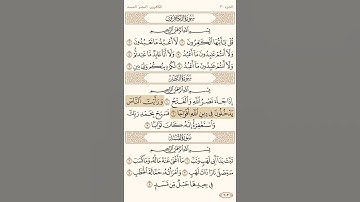 الجزء ٣٠
الكافرون، النصر، المسد
سُورَةُ الكَافِرُونَ
بِسْمِ اللَّهِ الرَّحْمَٰنِ الرَّحِيمِ
قُلْ يَا أَيُّهَا الْكَافِرُونَ ١ لَا أَعْبُدُ مَا تَعْبُدُونَ ٢
وَلَا أَنتُمْ عَابِدُونَ مَا أَعْبُدُ ٣ وَلَا أَنَا عَابِدٌ مَّا عَبَدتُّمْ ٤
وَلَا أَنتُمْ عَابِدُونَ مَا أَعْبُدُ ٥ لَكُمْ دِينُكُمْ وَلِيَ دِينِ ٦
سُورَةُ النَّصْرِ
بِسْمِ اللَّهِ الرَّحْمَٰنِ الرَّحِيمِ
إِذَا جَاءَ نَصْرُ اللَّهِ وَالْفَتْحُ ١ وَرَأَيْتَ النَّاسَ
يَدْخُلُونَ فِي دِينِ اللَّهِ أَفْوَاجًا ٢ فَسَبِّحْ بِحَمْدِ رَبِّكَ
وَاسْتَغْفِرْهُ إِنَّهُ كَانَ تَوَّابًا ٣
سُورَةُ المَسَدِ
بِسْمِ اللَّهِ الرَّحْمَٰنِ الرَّحِيمِ
تَبَّتْ يَدَا أَبِي لَهَبٍ وَتَبَّ ١ مَا أَغْنَىٰ عَنْهُ مَالُهُ وَمَا كَسَبَ ٢
سَيَصْلَىٰ نَارًا ذَاتَ لَهَبٍ ٣ وَامْرَأَتُهُ حَمَّالَةَ الْحَطَبِ ٤
فِي جِيدِهَا حَبْلٌ مِّن مَّسَدٍ ٥
٦٠٣